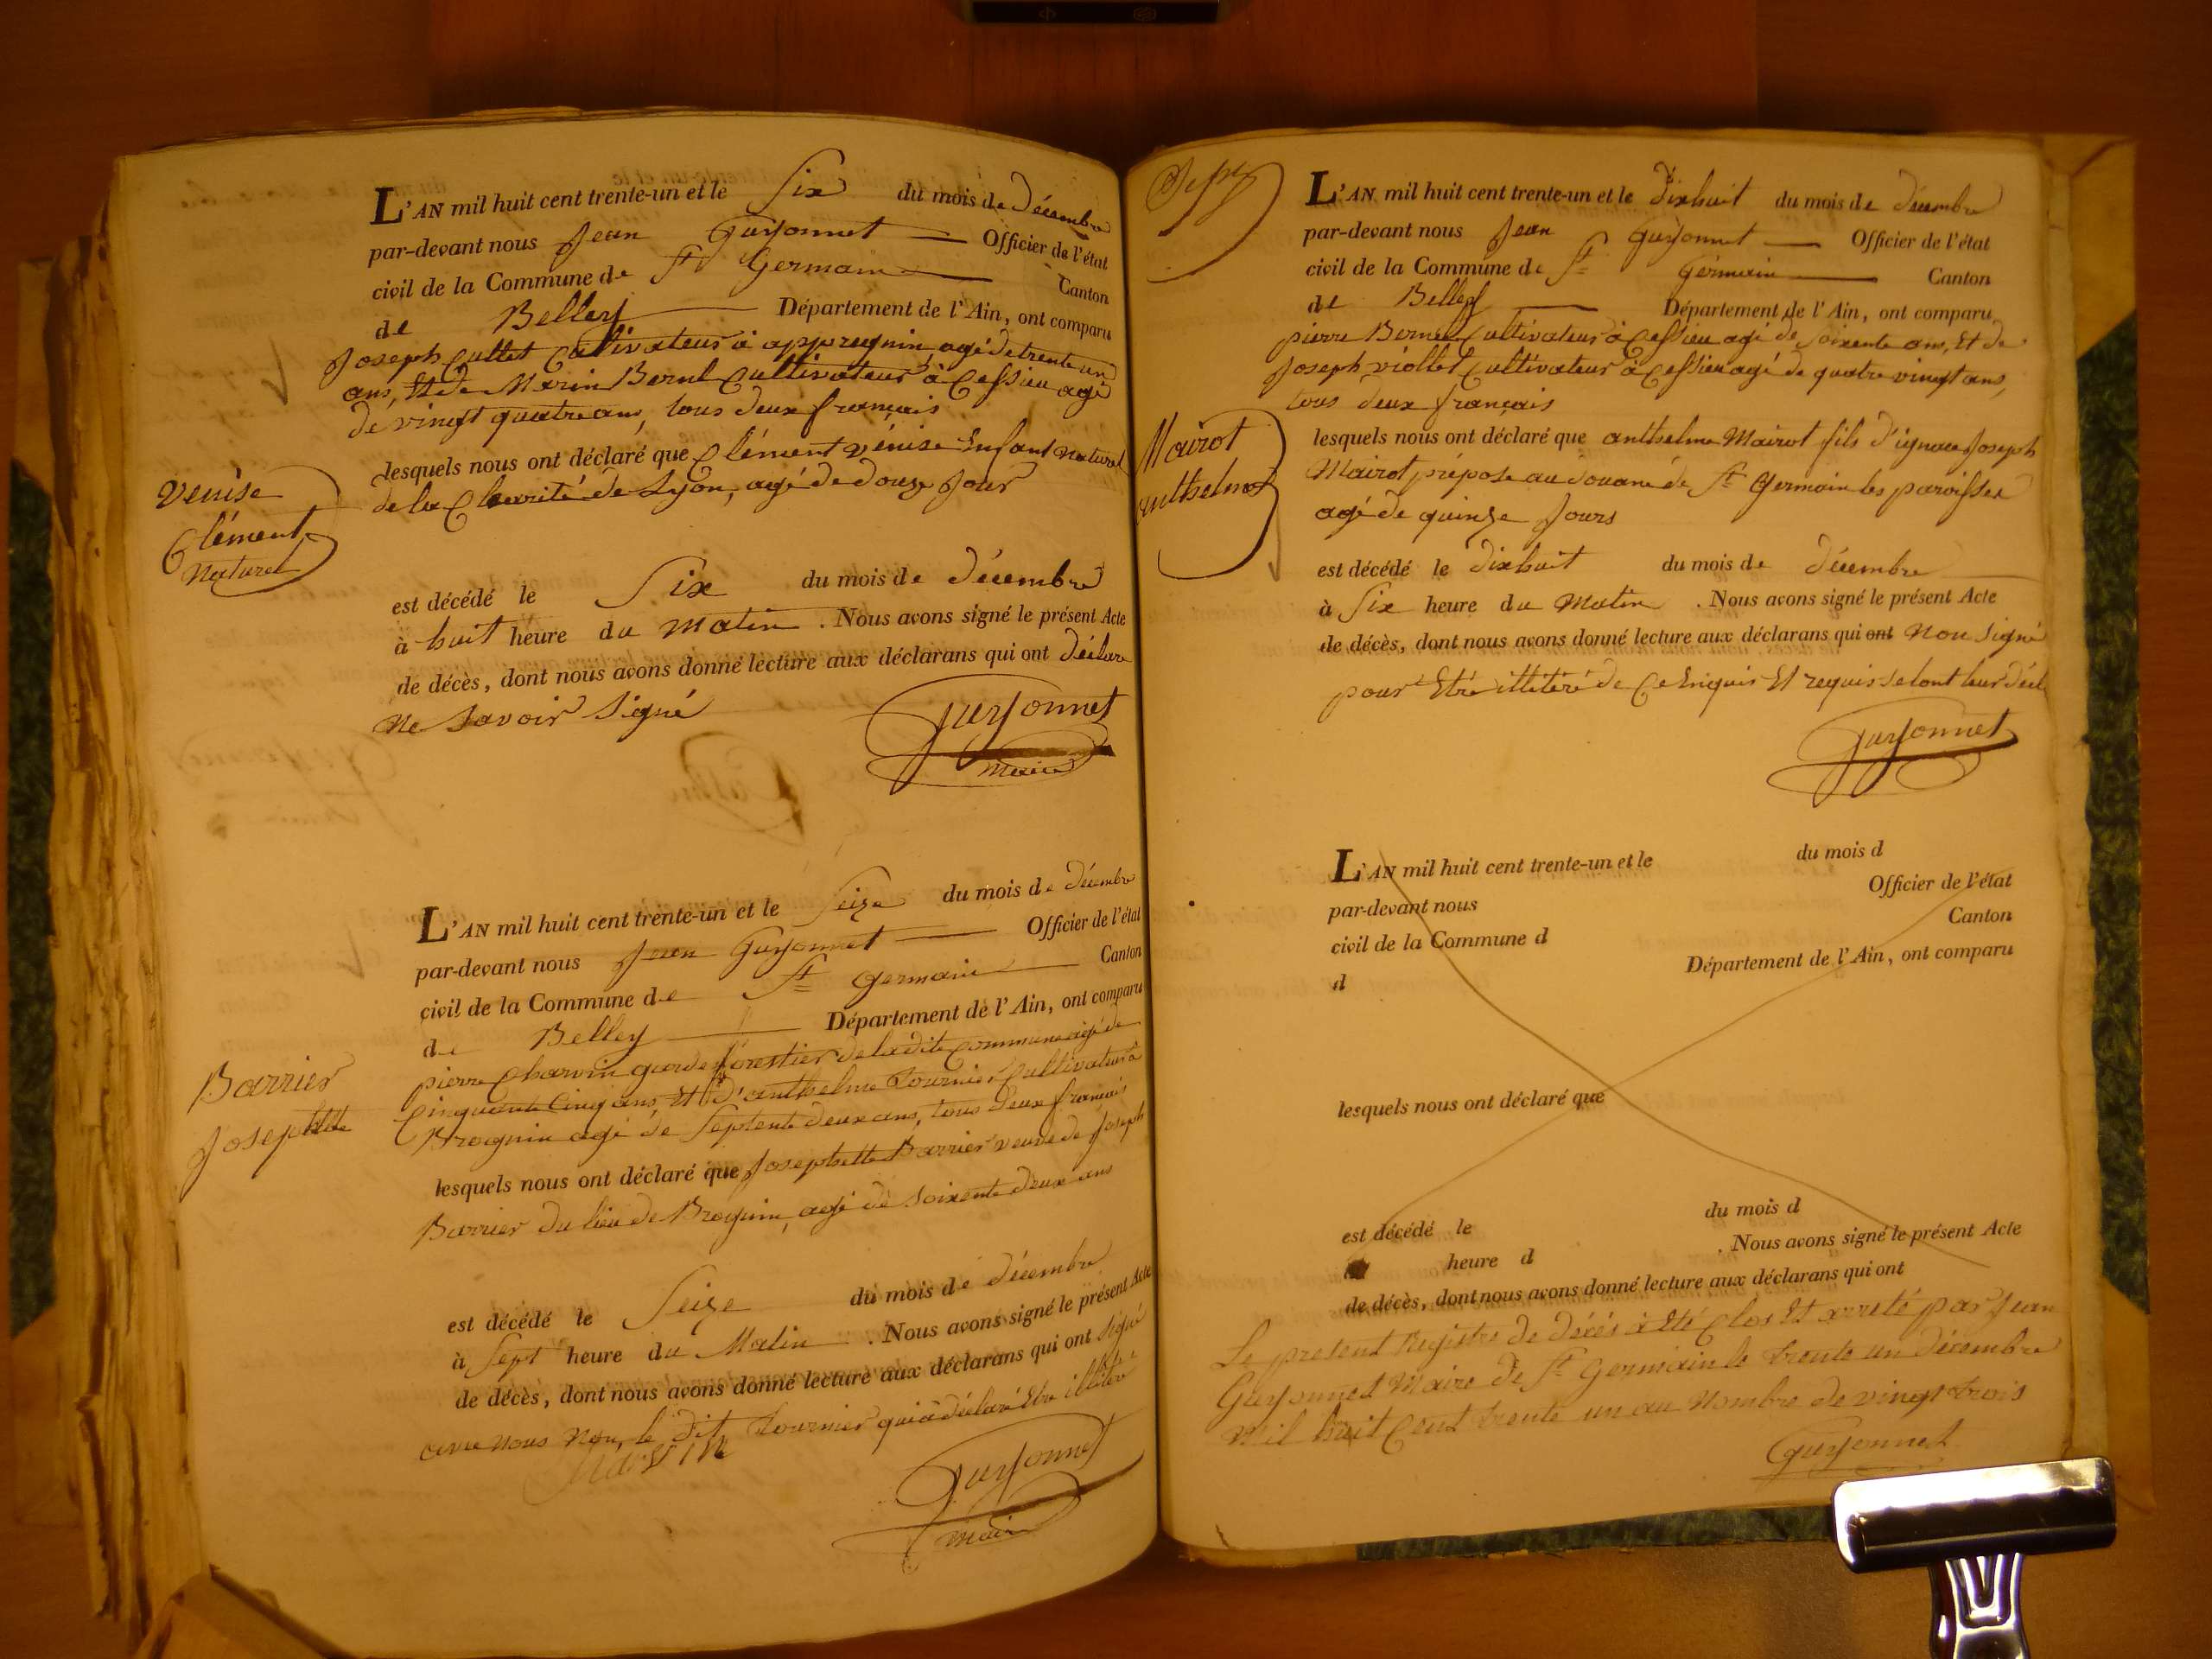 L'AN mil huit cent trente-un et le Six du mois de décembre
par-devant nous Jean Guyonnet Officier de l'état
civil de la Commune de St Germain Canton
de Belley Département de l'Ain, ont comparu
Joseph Cullet Cultivateur à appregnin, agé de trente un
ans, Et de Marin Bernel Cultivateur à Cessieu agé
de vingt quatre ans, tous deux français
lesquels nous ont déclaré que Clément vénise Enfant naturel
de la Charité de Lyon, agé de douze Jour
Venise
Clément
Naturel
est décédé le Six du mois de décembre
à huit heure du matin. Nous avons signé le présent Acte
de décès, dont nous avons donné lecture aux déclarans qui ont déclaré
ne savoir signé
Guyonnet
Maire
L'AN mil huit cent trente-un et le Seize du mois de décembre
par-devant nous Jean Guyonnet Officier de l'état
civil de la Commune de St germain Canton
de Belley Département de l'Ain, ont comparu
pierre Charvin garde forestier de la dite Commune agé de
Cinquante Cinq ans, Et d'anthelme Tournier Cultivateur à
Brognin agé de Septente deux ans, tous deux français
Barrier
Josephtte
lesquels nous ont déclaré que Josephette Barrier veuve de Joseph
Barrier du lieu de Brognin, agé de soixente deux ans
est décédé le Seize du mois de décembre
à Sept heure du Matin. Nous avons signé le présent Acte
de décès, dont nous avons donné lecture aux déclarans qui ont signé
avec nous Non, le dit Tournier qui à déclaré Etre
Guyonnet
Maire
L'AN mil huit cent trente-un et le dixhuit du mois de décembre
par-devant nous Jean Guyonnet Officier de l'état
civil de la Commune de St Germain Canton
de Belley Département de l'Ain, ont comparu
pierre Bernel Cultivateur à Cessieu agé de Soixente ans, Et de
Joseph viollet Cultivateur à Cessieu agé de quatre vingt ans,
tous deux français
Mairot
anthelme
lesquels nous ont déclaré que anthelme Mairot fils d'ignace Joseph
Mairot, préposé au douane de St Germain les paroisses
agé de quinze Jours
est décédé le dixhuit du mois de décembre
à Six heure du Matin. Nous avons signé le présent Acte
de décès, dont nous avons donné lecture aux déclarans qui ont Non Signé
pour Etre illitéré de Ce Enquis Et requis selont leur décl
Guyonnet
L'AN mil huit cent trente-un et le du mois d
par-devant nous Officier de l'état
civil de la Commune d Canton
d Département de l'Ain, ont comparu
lesquels nous ont déclaré que
est décédé le du mois d
à heure d . Nous avons signé le présent Acte
de décès, dont nous avons donné lecture aux déclarans qui ont
Le present Registre de décés à Eté Clos Et arreté par Jean
Guyonnet Maire de St Germain le trente un décembre
mil huit Cent trente un au nombre de vingt trois
Guyonnet